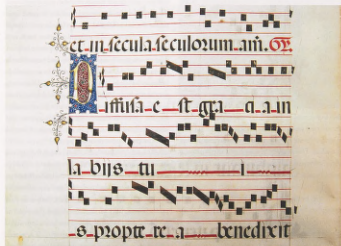 et in secula seculorum am̄.
Diffusa e st gra ci a in
la bijs tu i
s propte re a benedixit